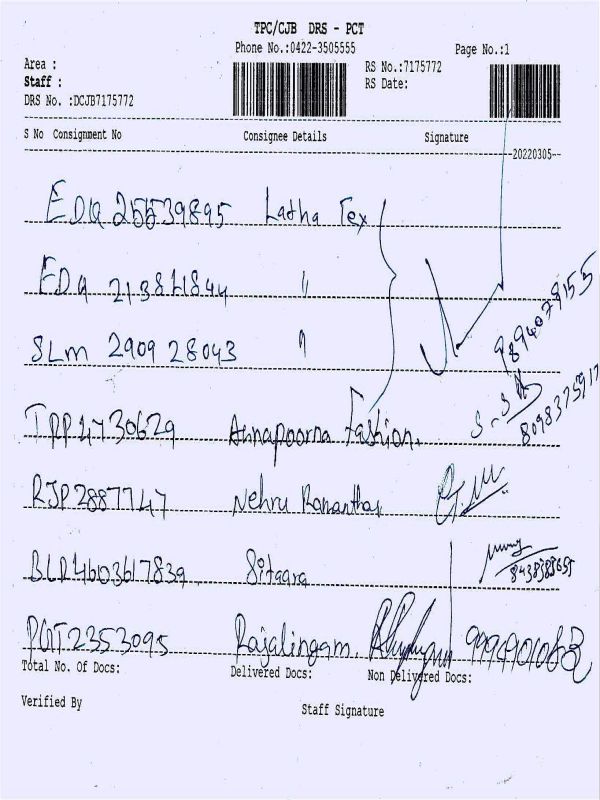 TPC/CJB DRS - PCT
Phone No.:0422-3505555 Page No.:1
Area : RS No.:7175772
Staff : RS Date:
DRS No. :DCJB7175772
S No Consignment No Consignee Details Signature
20220305
EDQ 25539895 Latha Tex
EDQ 21381844 "
SLM 290928043 "
9894078155
TPP44730629 Annapoorna Fashion.
8098375917
RJP2887747 Nehru
BLR4603617839 Sitaara
8438388695
PGT2353095 Rajalingam.
Total No. Of Docs: Delivered Docs: Non Delivered Docs:
Verified By Staff Signature